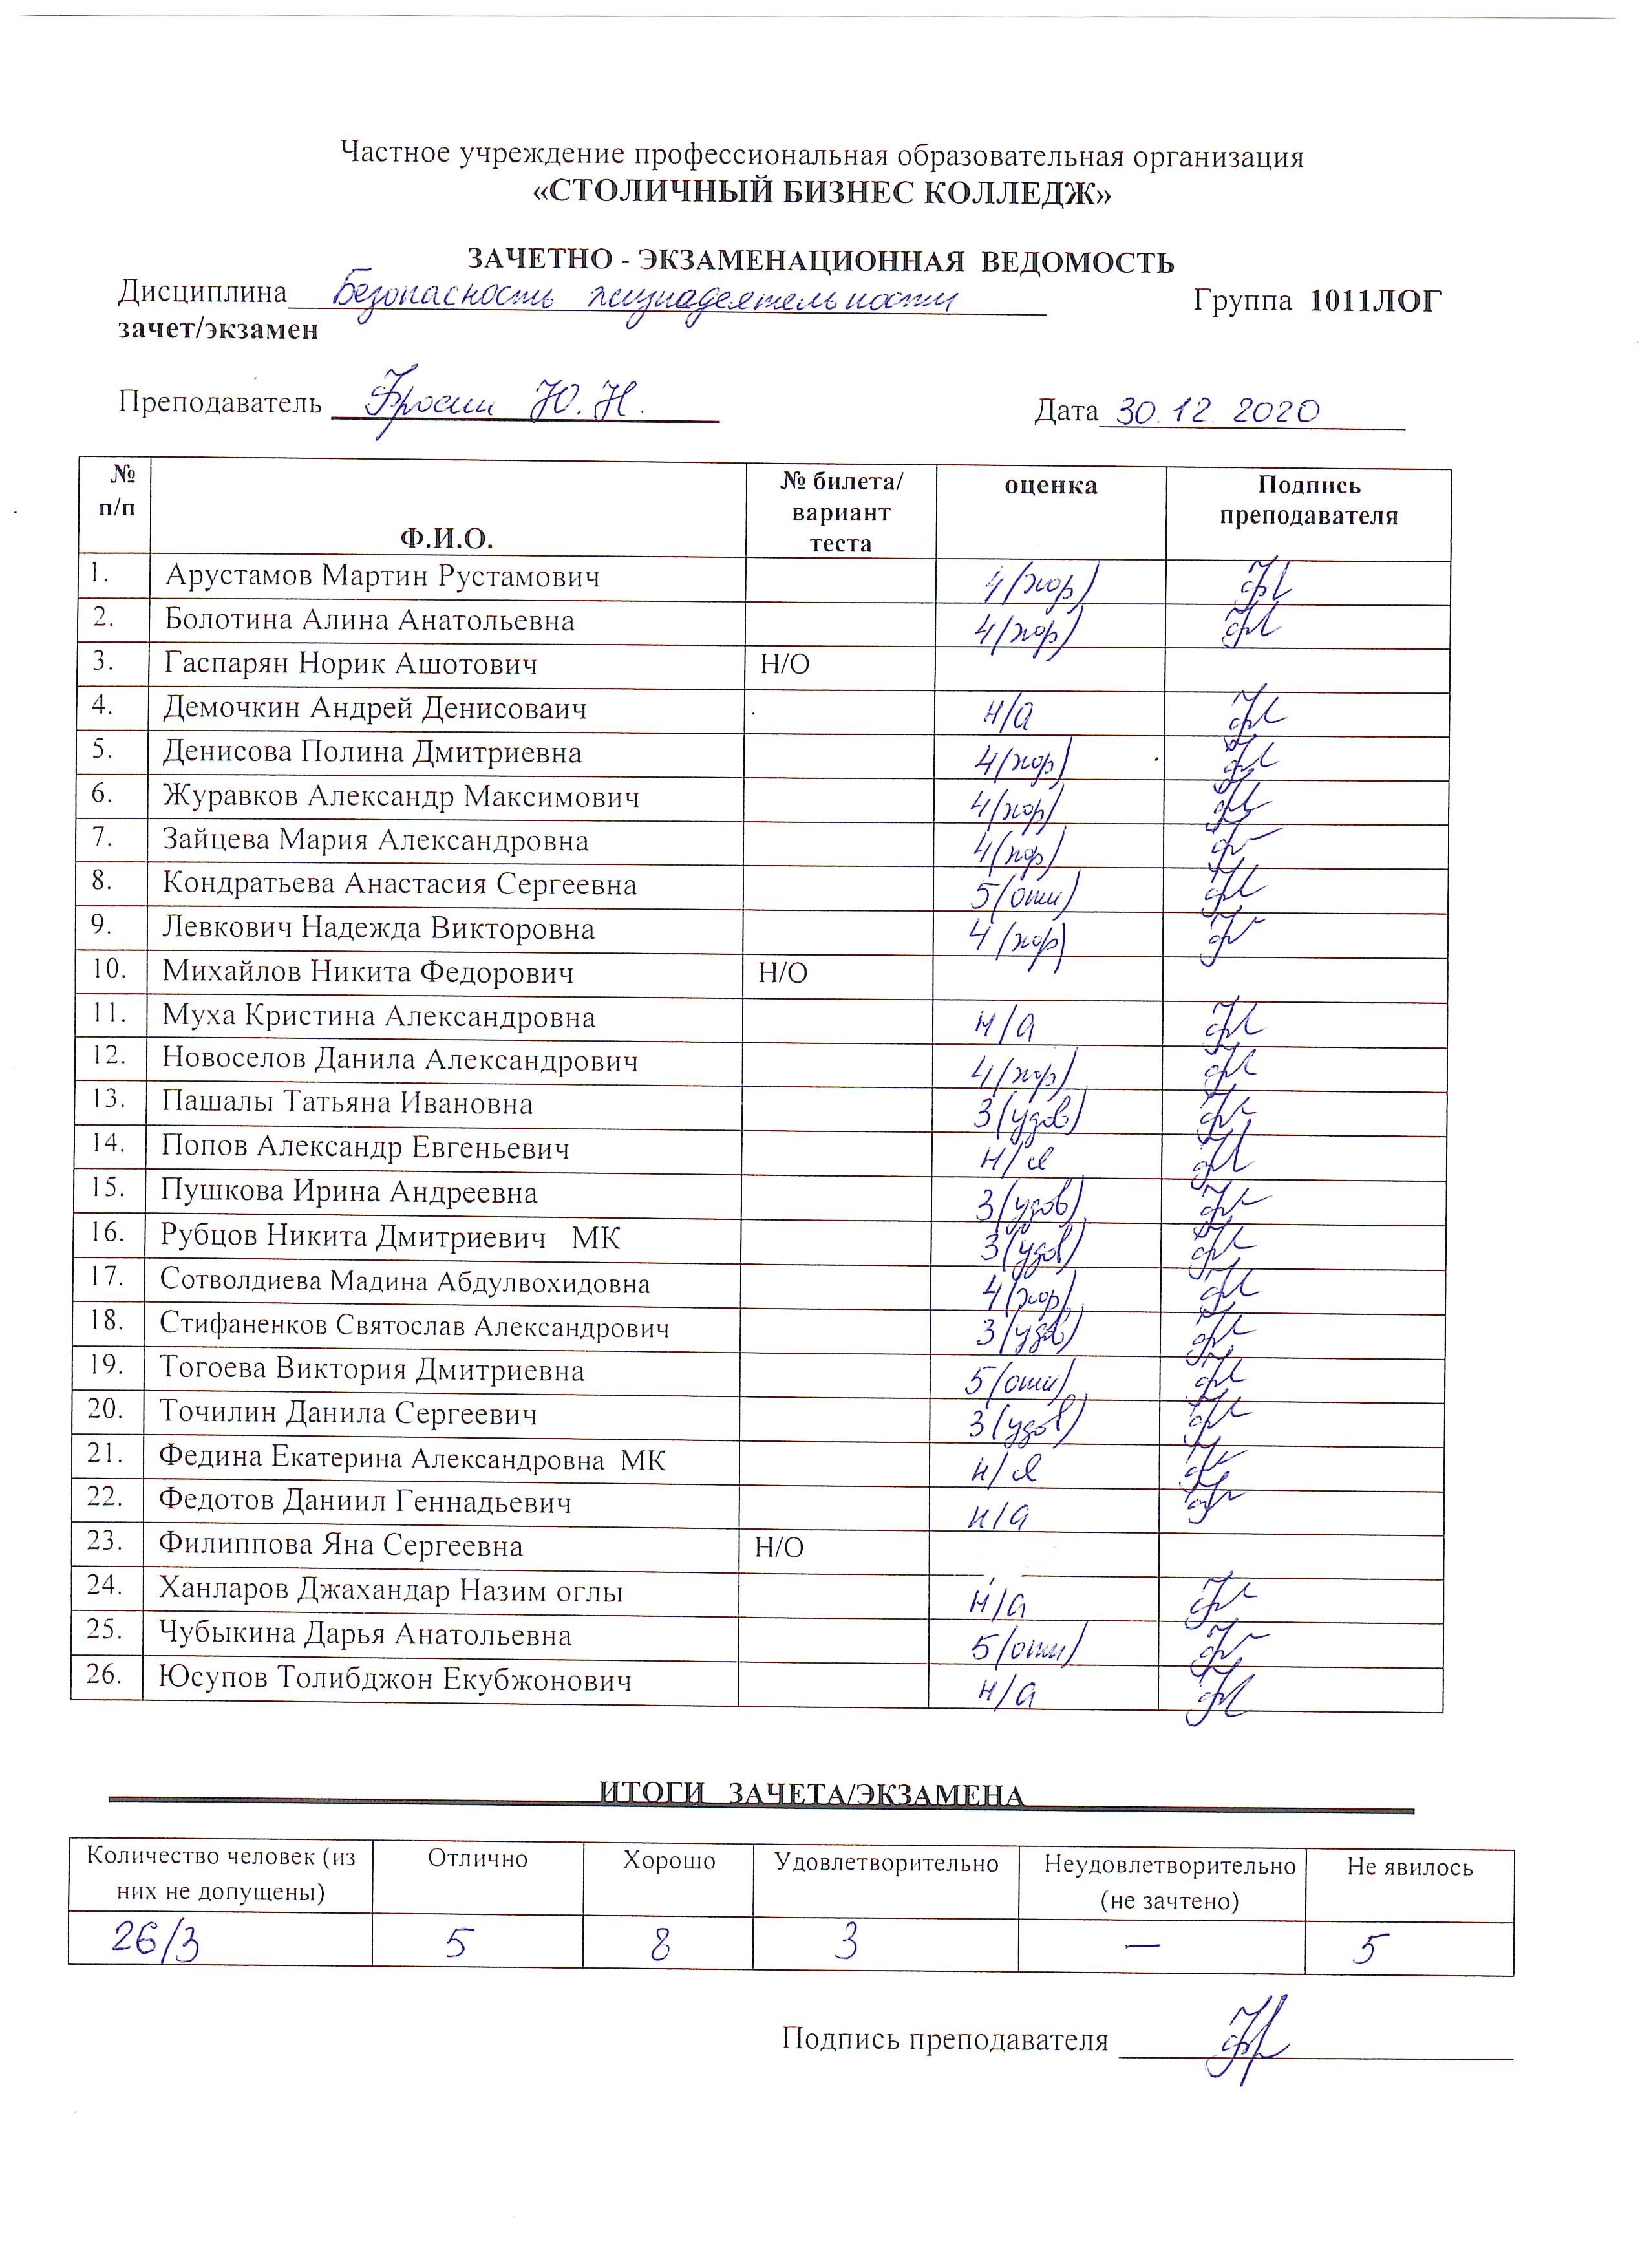 Частное учреждение профессиональная образовательная организация
«СТОЛИЧНЫЙ БИЗНЕС КОЛЛЕДЖ»
ЗАЧЕТНО - ЭКЗАМЕНАЦИОННАЯ ВЕДОМОСТЬ
Дисциплина Безопасность жизнедеятельности Группа 1011ЛОГ
зачет/экзамен
Преподаватель Ю.Н. Дата 30.12 2020
№ п/п Ф.И.О. № билета/ вариант теста оценка Подпись преподавателя
1. Арустамов Мартин Рустамович 4(хор)
2. Болотина Алина Анатольевна 4(хор)
3. Гаспарян Норик Ашотович Н/О
4. Демочкин Андрей Денисоваич н/а
5. Денисова Полина Дмитриевна 4(хор)
6. Журавков Александр Максимович 4(хор)
7. Зайцева Мария Александровна 4(хор)
8. Кондратьева Анастасия Сергеевна 5(отл)
9. Левкович Надежда Викторовна 4(хор)
10. Михайлов Никита Федорович Н/О
11. Муха Кристина Александровна н/а
12. Новоселов Данила Александрович 4(хор)
13. Пашалы Татьяна Ивановна 3(удов)
14. Попов Александр Евгеньевич н/я
15. Пушкова Ирина Андреевна 3(удов)
16. Рубцов Никита Дмитриевич МК 3(удов)
17. Сотволдиева Мадина Абдулвохидовна 4(хор)
18. Стифаненков Святослав Александрович 3(удов)
19. Тогоева Виктория Дмитриевна 5(отл)
20. Точилин Данила Сергеевич 3(удов)
21. Федина Екатерина Александровна МК н/я
22. Федотов Даниил Геннадьевич н/а
23. Филиппова Яна Сергеевна Н/О
24. Ханларов Джахандар Назим оглы н/а
25. Чубыкина Дарья Анатольевна 5(отл)
26. Юсупов Толибджон Екубжонович н/а
ИТОГИ ЗАЧЕТА/ЭКЗАМЕНА
Количество человек (из них не допущены) Отлично Хорошо Удовлетворительно Неудовлетворительно (не зачтено) Не явилось
26/3 5 8 3 — 5
Подпись преподавателя